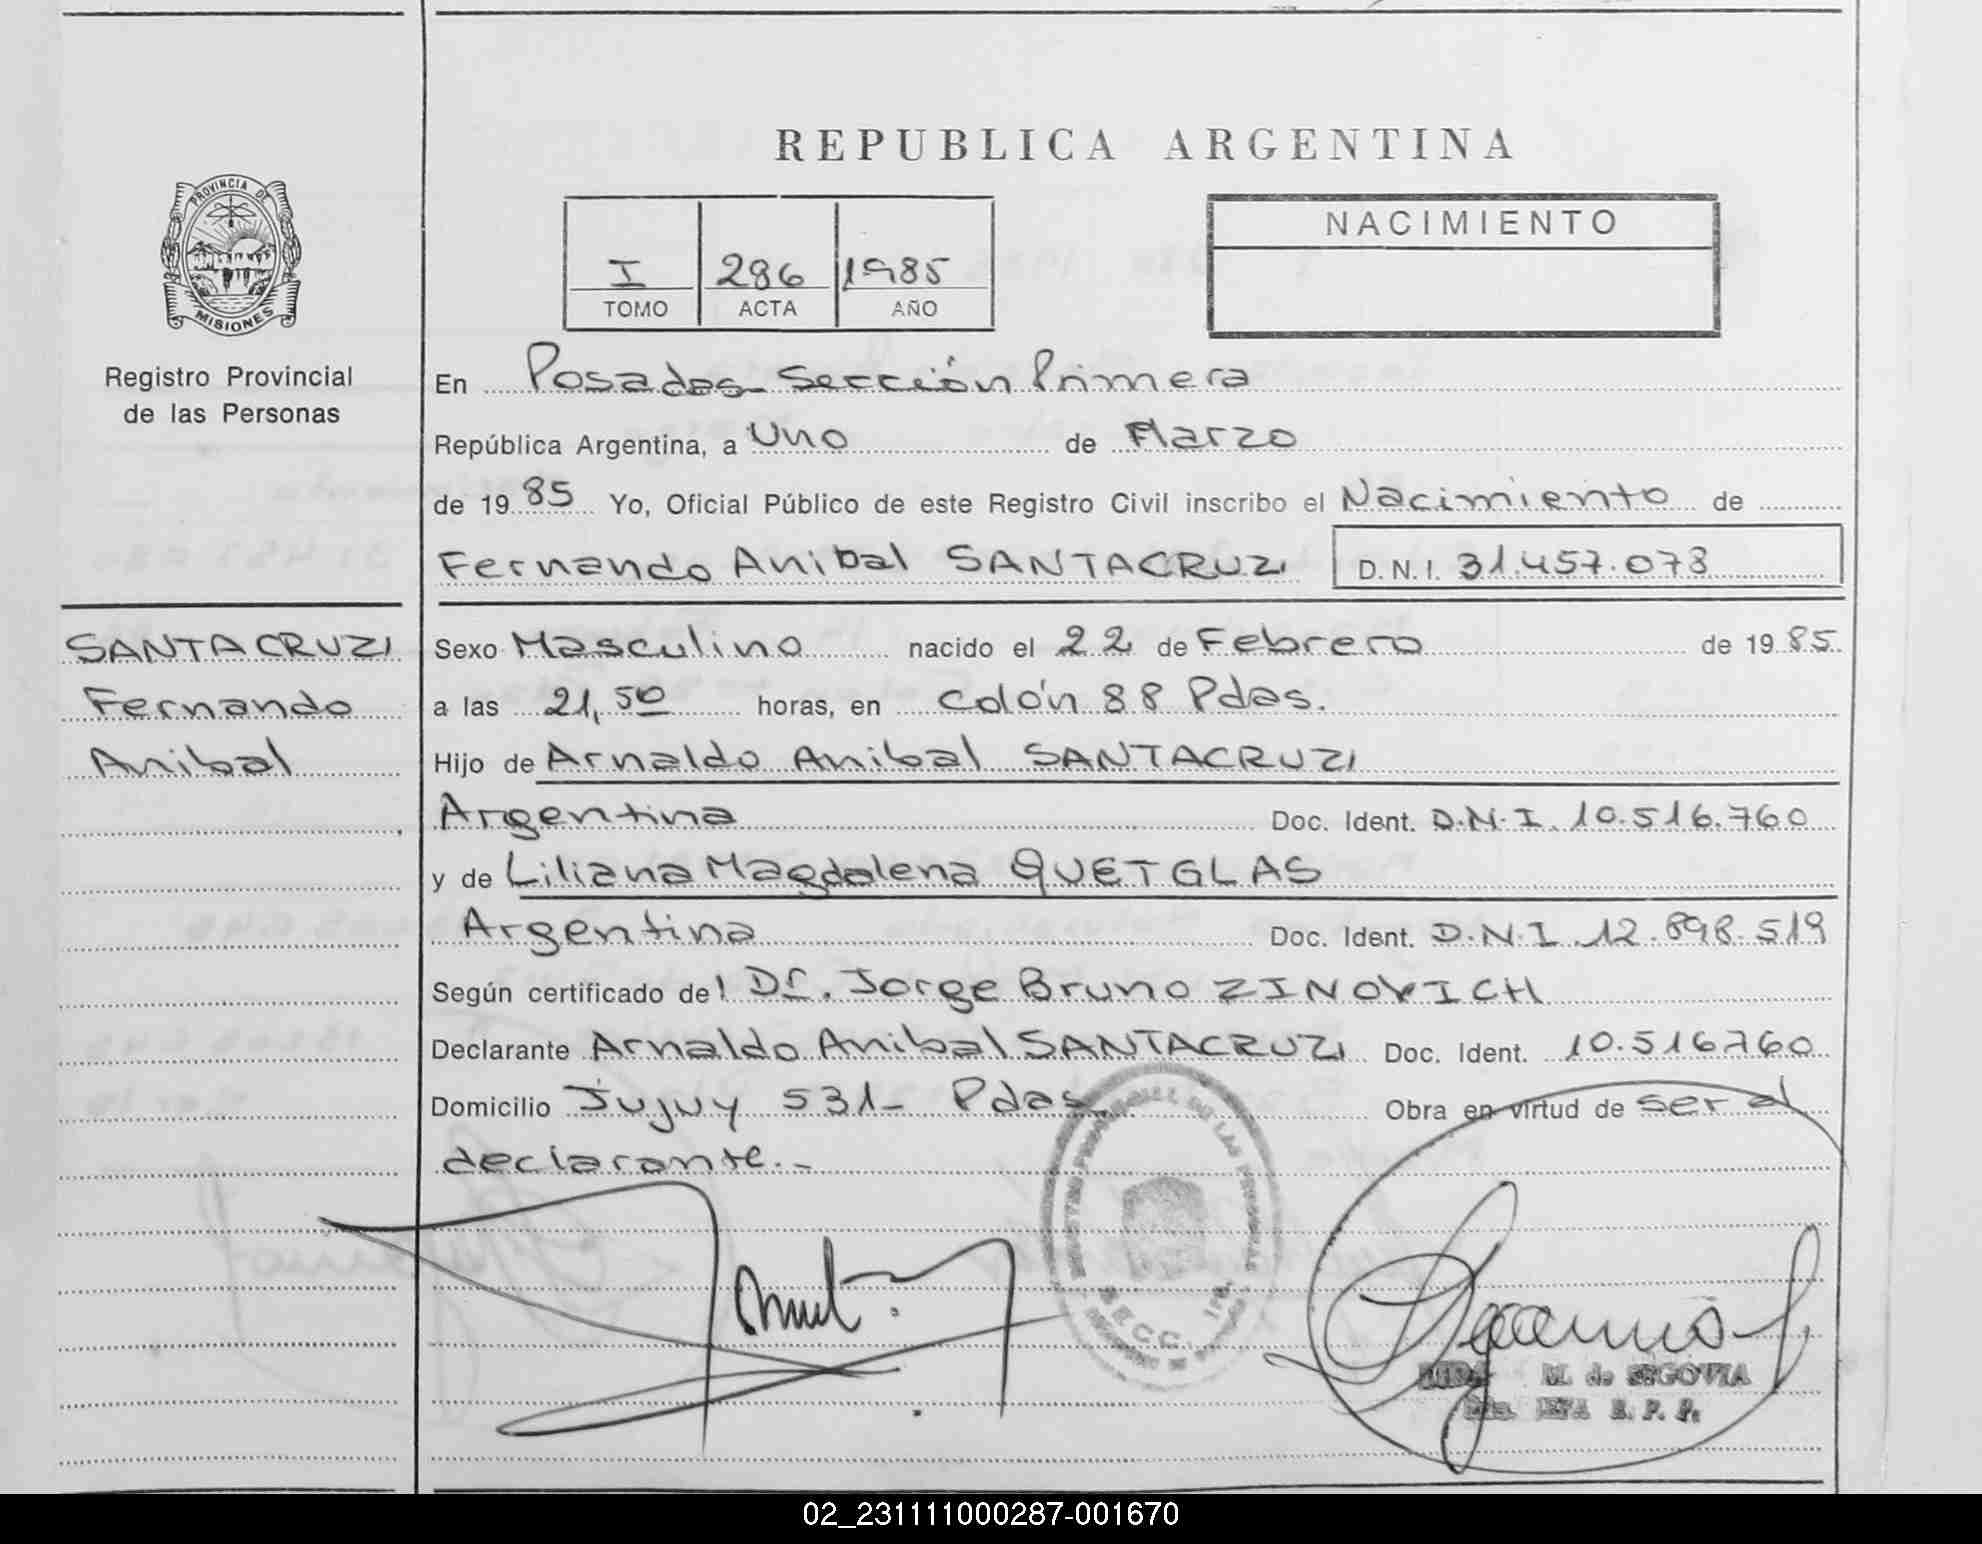 REPUBLICA ARGENTINA
PROVINCIA DE
MISIONES
Registro Provincial
de las Personas
I 286 1985
TOMO ACTA AÑO
NACIMIENTO
En Posadas Sección Primera
República Argentina, a Uno de Marzo
de 1985 Yo, Oficial Público de este Registro Civil inscribo el Nacimiento de
Fernando Anibal SANTACRUZI D.N.I. 31.457.078
SANTACRUZI
Fernando
Anibal
Sexo Masculino nacido el 22 de Febrero de 1985.
a las 21,50 horas, en Colón 88 Pdas.
Hijo de Arnaldo Anibal SANTACRUZI
Argentina Doc. Ident. D.N.I. 10.516.760
y de Liliana Magdalena QUETGLAS
Argentina Doc. Ident. D.N.I. 12.898.519
Según certificado del Dr. Jorge Bruno ZINOVICH
Declarante Arnaldo Anibal SANTACRUZI Doc. Ident. 10.516760
Domicilio Jujuy 531- Pdas. Obra en virtud de ser al
declarante.-
SECC. 1ra.
M. de SEGOVIA
JEFA R. P. P.
02_231111000287-001670